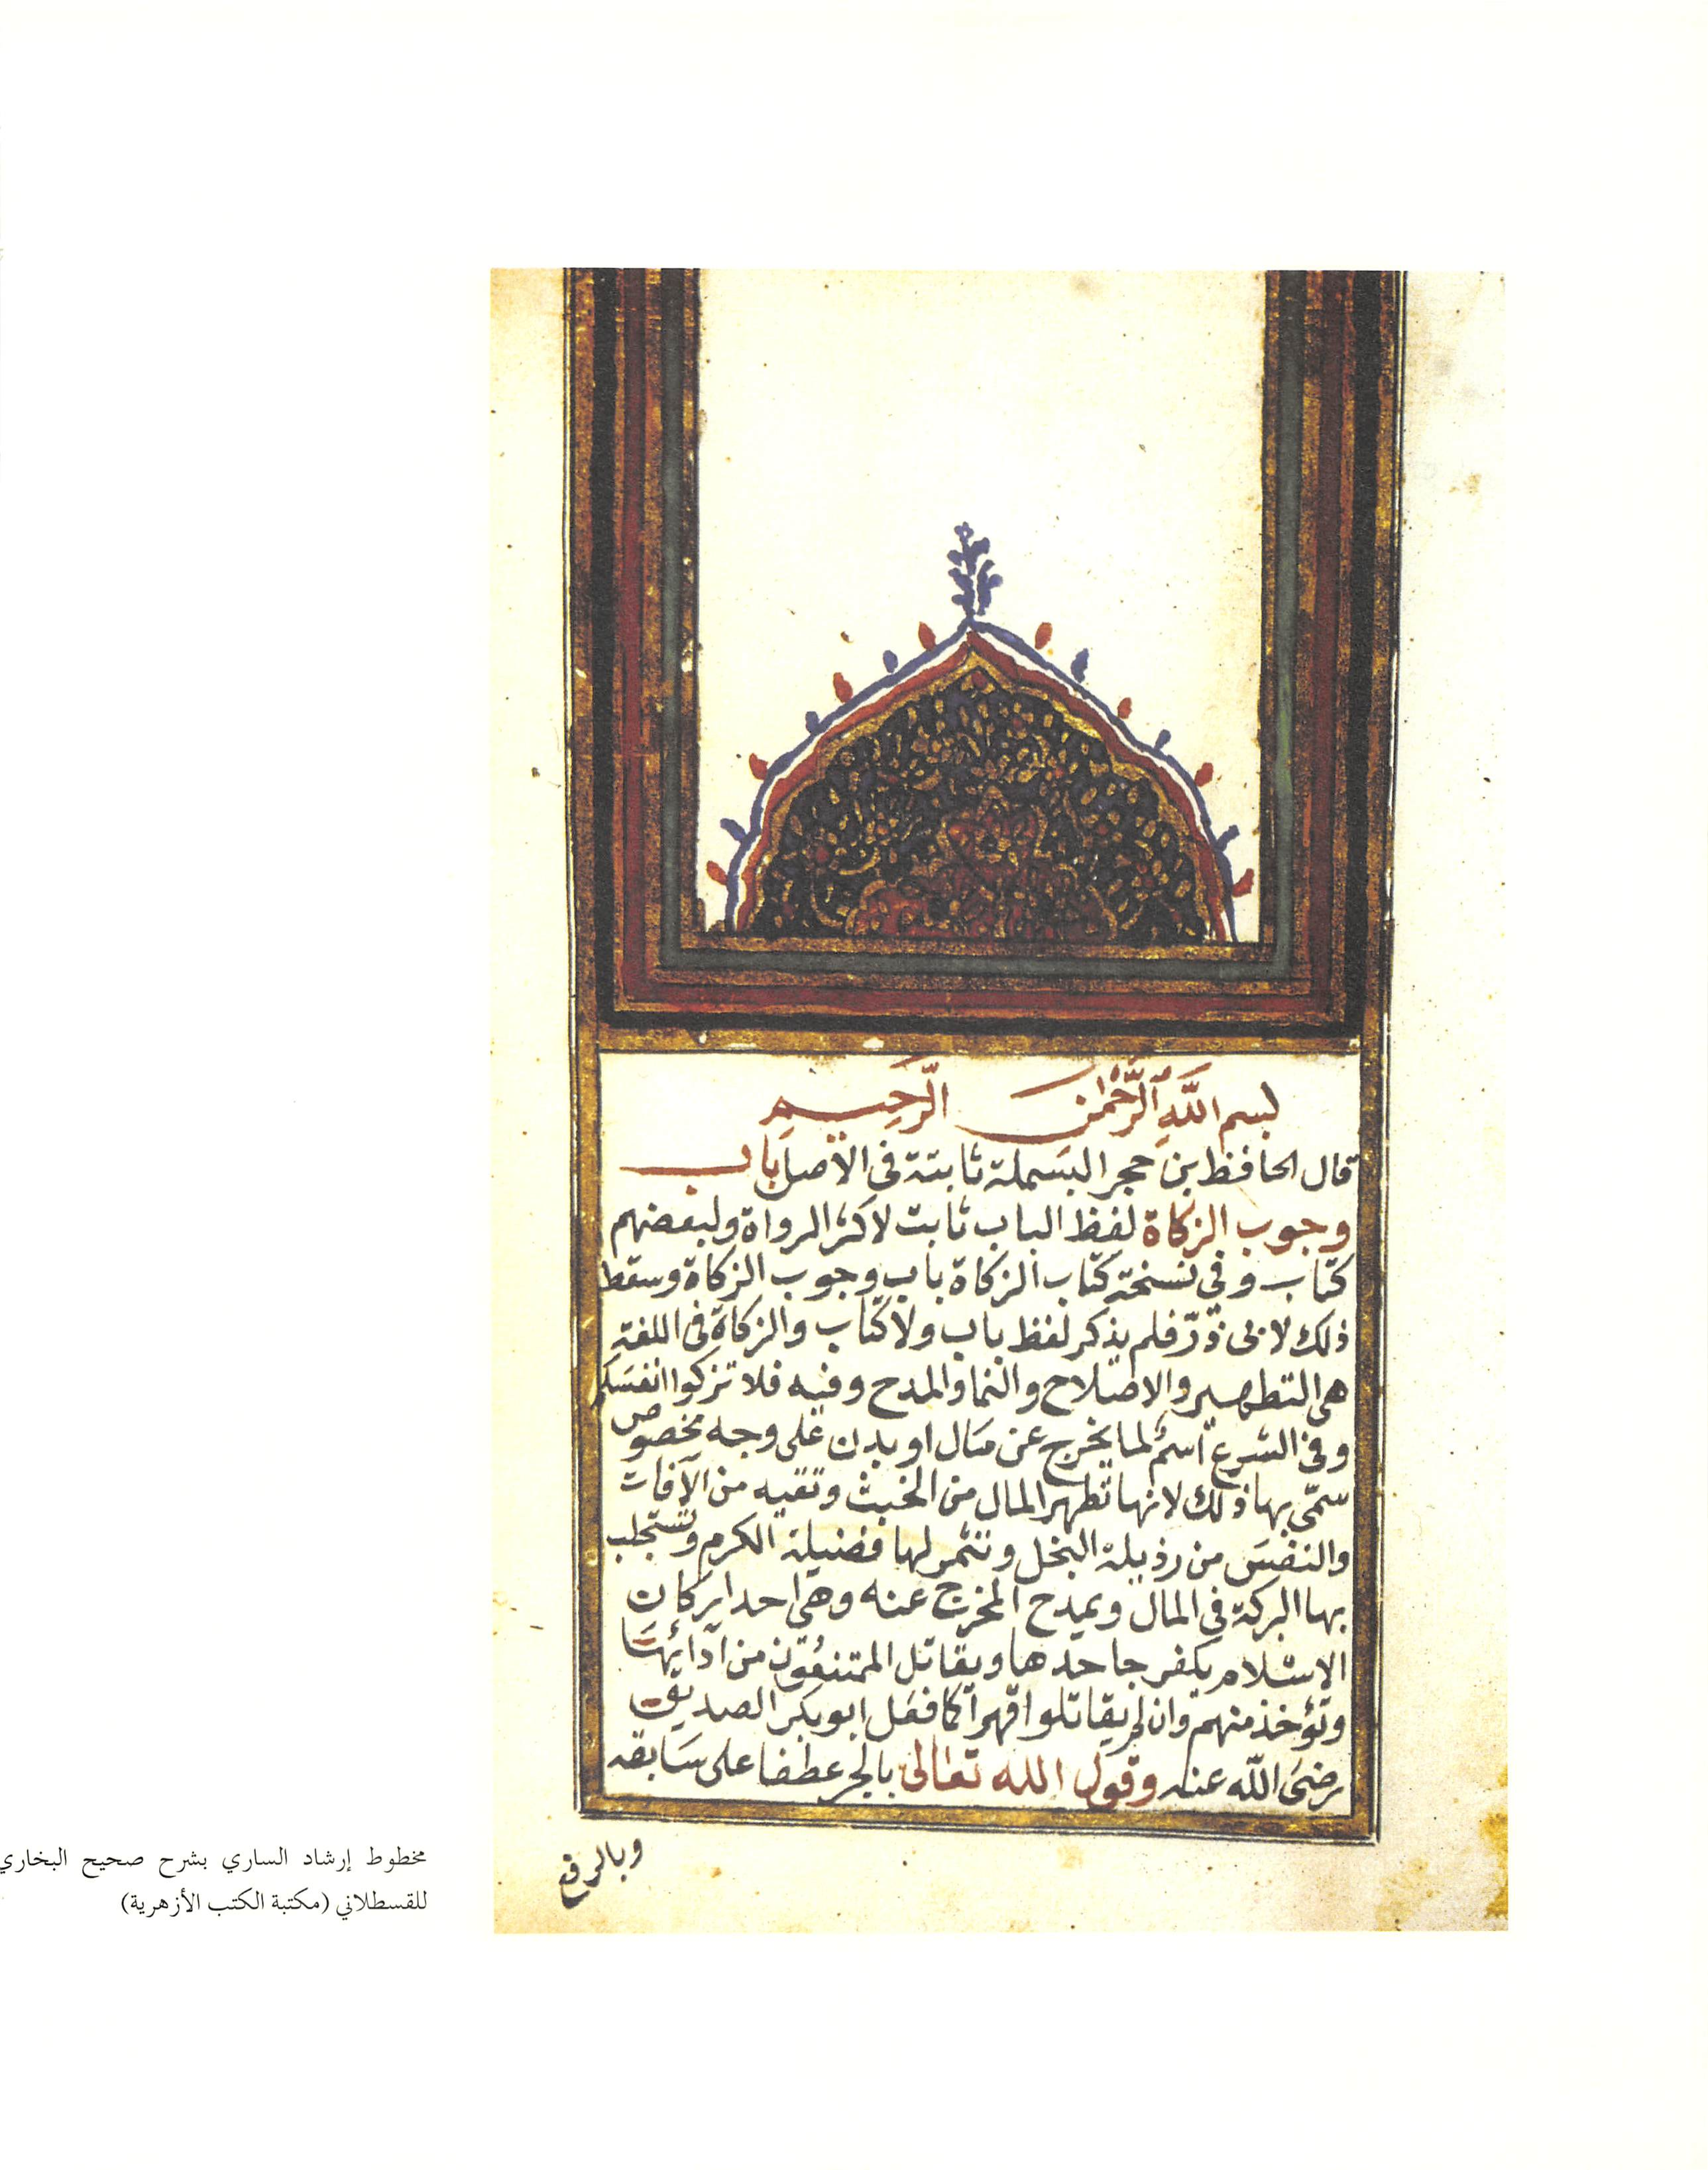 بسم اللَّهِ ٱلرَّحْمٰن الرَّحِيم
قال الحافظ بن حجر البسملة ثابتة في الأصل باب
وجوب الزكاة لفظ الباب ثابت لاكثر الرواة ولبعضهم
كتاب وفي نسخة كتاب الزكاة باب وجوب الزكاة وسقط
ذلك لابى ذرّ فلم يذكر لفظ باب ولا كتاب والزكاة في اللغة
هي التطهير والاصلاح والنما والمدح وفيه فلا تزكوا انفسكم
وفي الشرع اسم لما يخرج عن مال او بدن على وجه مخصوص
سمّى بها ذلك لانها تطهر المال من الخبث وتقيه من الآفات
والنفس من رذيلة البخل وتثمر لها فضيلة الكرم وتستجلب
بها البركة في المال ويمدح المخرج عنه وهي احد اركان
الاسلام يكفر جاحدها ويقاتل الممتنعون من آدائها
وتؤخذ منهم وان لم يقاتلوا قهرا كما فعل ابو بكر الصديق
رضى اللّه عنه وقول الله تعالى بالجر عطفا على سابقه
وبالرفع
مخطوط إرشاد الساري بشرح صحيح البخاري
للقسطلاني (مكتبة الكتب الأزهرية)